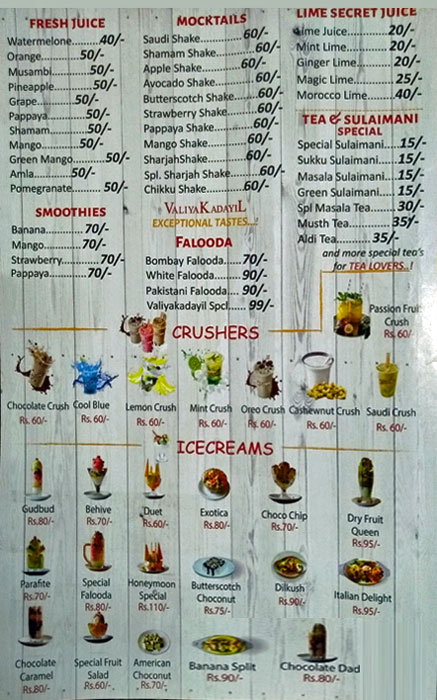 FRESH JUICE
Watermelone..........40/-
Orange..............50/-
Musambi..........50/-
Pineapple.........50/-
Grape..............50/-
Pappaya...........50/-
Shamam...........50/-
Mango..............50/-
Green Mango.......50/-
Amla................50/-
Pomegranate........ 50/-
SMOOTHIES
Banana..........70/-
Mango...........70/-
Strawberry..........70/-
Pappaya..........70/-
MOCKTAILS
Saudi Shake...........60/-
Shamam Shake..........60/-
Apple Shake..........60/-
Avocado Shake........60/-
Butterscotch Shake.......60/-
Strawberry Shake........60/-
Pappaya Shake........60/-
Mango Shake..........60/-
SharjahShake..........60/-
Spl. Sharjah Shake.......60/-
Chikku Shake..........60/-
VALIYAKADAYIL
EXCEPTIONAL TASTES...!
FALOODA
Bombay Falooda.....70/-
White Falooda.......90/-
Pakistani Falooda.... 90/-
Valiyakadayil Spcl..... 99/-
LIME SECRET JUICE
Lime Juice...........20/-
Mint Lime...........20/-
Ginger Lime........20/-
Magic Lime..........25/-
Morocco Lime......40/-
TEA & SULAIMANI
SPECIAL
Special Sulaimani.....15/-
Sukku Sulaimani......15/-
Masala Sulaimani.....15/-
Green Sulaimani......15/-
Spl Masala Tea........30/-
Musth Tea..............35/-
Aldi Tea...........35/-
and more special tea's
for TEA LOVERS..!
Passion Fruit
Crush
Rs. 60/-
CRUSHERS
Chocolate Crush
Rs. 60/-
Cool Blue
Rs. 60/-
Lemon Crush
Rs. 60/-
Mint Crush
Rs. 60/-
Oreo Crush
Rs. 60/-
Cashewnut Crush
Rs. 60/-
Saudi Crush
Rs. 60/-
ICECREAMS
Gudbud
Rs.80/-
Behive
Rs.70/-
Duet
Rs.60/-
Exotica
Rs.80/-
Choco Chip
Rs.70/-
Dry Fruit
Queen
Rs.95/-
Parafite
Rs.70/-
Special
Falooda
Rs.80/-
Honeymoon
Special
Rs.110/-
Butterscotch
Choconut
Rs.75/-
Dilkush
Rs.90/-
Italian Delight
Rs.95/-
Chocolate
Caramel
Rs.80/-
Special Fruit
Salad
Rs.60/-
American
Choconut
Rs.70/-
Banana Split
Rs.90/-
Chocolate Dad
Rs.80/-